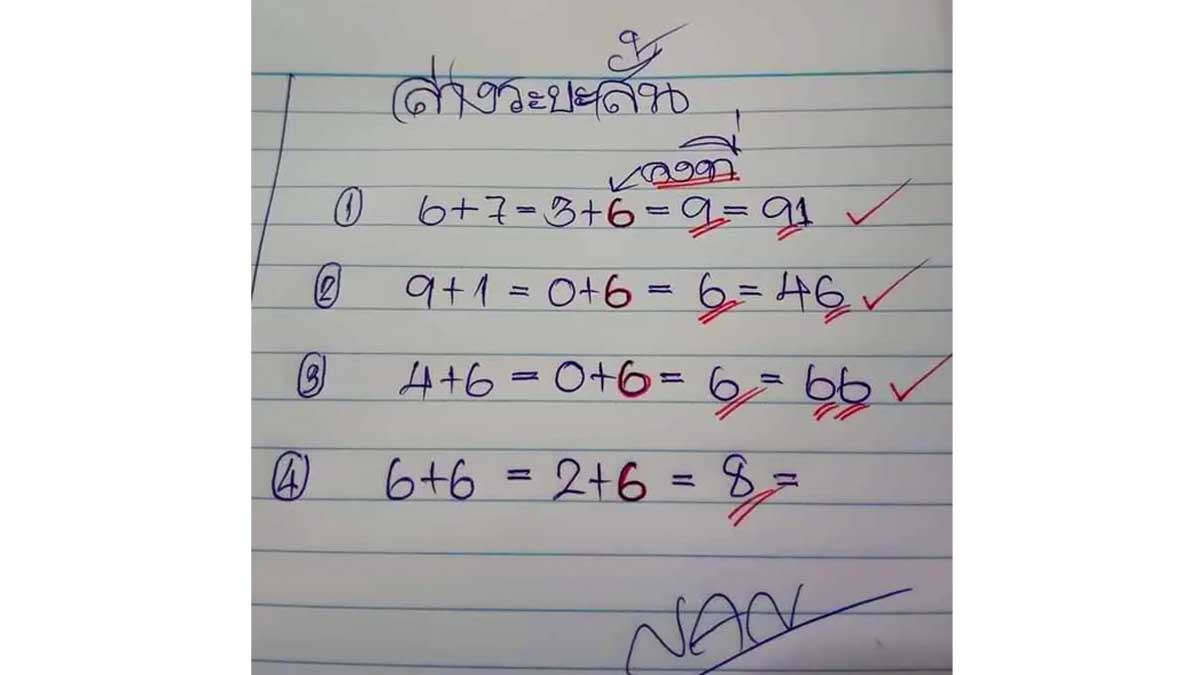 ล่างระยะสั้น
คงที่
① 6+7=3+6=9=91
② 9+1=0+6=6=46
③ 4+6=0+6=6=66
④ 6+6=2+6=8=
NAN